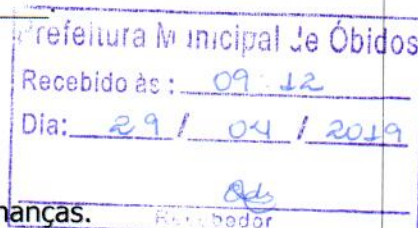 Prefeitura Municipal de Óbidos
Recebido às: 09:12
Dia: 29 / 04 / 2019
nanças. Recebedor